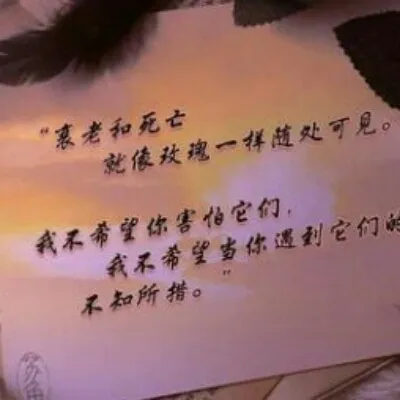 “衰老和死亡
就像玫瑰一样随处可见。
我不希望你害怕它们，
我不希望当你遇到它们的
不知所措。”